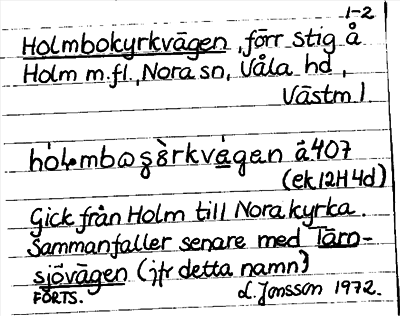 1-2
Holmbokyrkvägen, förr stig å
Holm m.fl., Nora sn, Våla hd,
Västml.
hòḷmbωṣ̌ɜ̀rkvá̱gen ä407
(ek12H4d)
Gick från Holm till Nora kyrka.
Sammanfaller senare med Tärn-
sjövägen (jfr detta namn)
FORTS. L. Jonsson 1972.